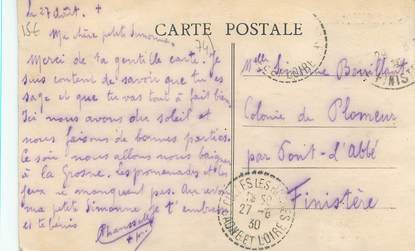 le 27 Août. +
15f
CARTE POSTALE
Ma chère petite Simonne.
74
Merci de ta gentille carte. Je
suis content de savoir que tu es
sage et que tu vas tout à fait bien.
Ici nous avons du soleil et
nous faisons de bonnes parties.
le soir nous allons nous baigner
à la Grosne. les promenades et les
jeux ne manquent pas. Au revoir
ma petite Simonne je t'embrasse
et te bénis
Melle Simonne
Colonie de Plomeur
par Pont-d'Abbé
Finistère
LOIRE
FINIST
27-8
30
ET LOIRE